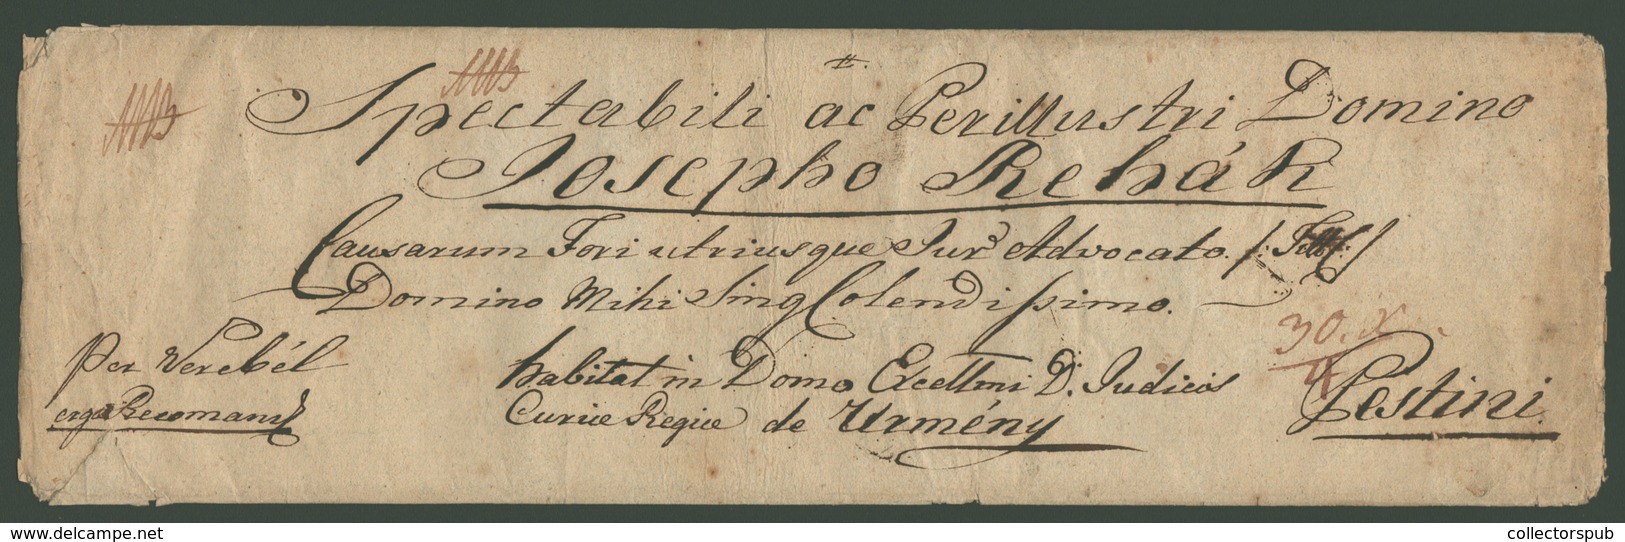 Spectabili ac Perillustri Domino
Josepho Rehák
Causarum Fori utriusque Jur. Advocato /: Titt :/
Domino Mihi Sing Colendissimo.
30. x
4
per Verebél
erga Recomand
habitat in Domo Excellmi D. Judicis
Curiae Regiae de Ürmény
Pestini.
Item number: 475871144
collectorspub